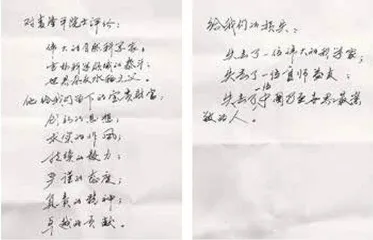 对袁隆平院士评价：
伟大的自然科学家，
农业科学领域的泰斗，
世界杂交水稻之父。
他给我们留下的宝贵财富：
创新的思想；
求实的作风；
持续的毅力；
严谨的态度；
负责的精神；
卓越的贡献。
给我们的损失：
失去了一位伟大的科学家；
失去了一位良师益友；
失去了一位中国乃至世界最受
敬的人。